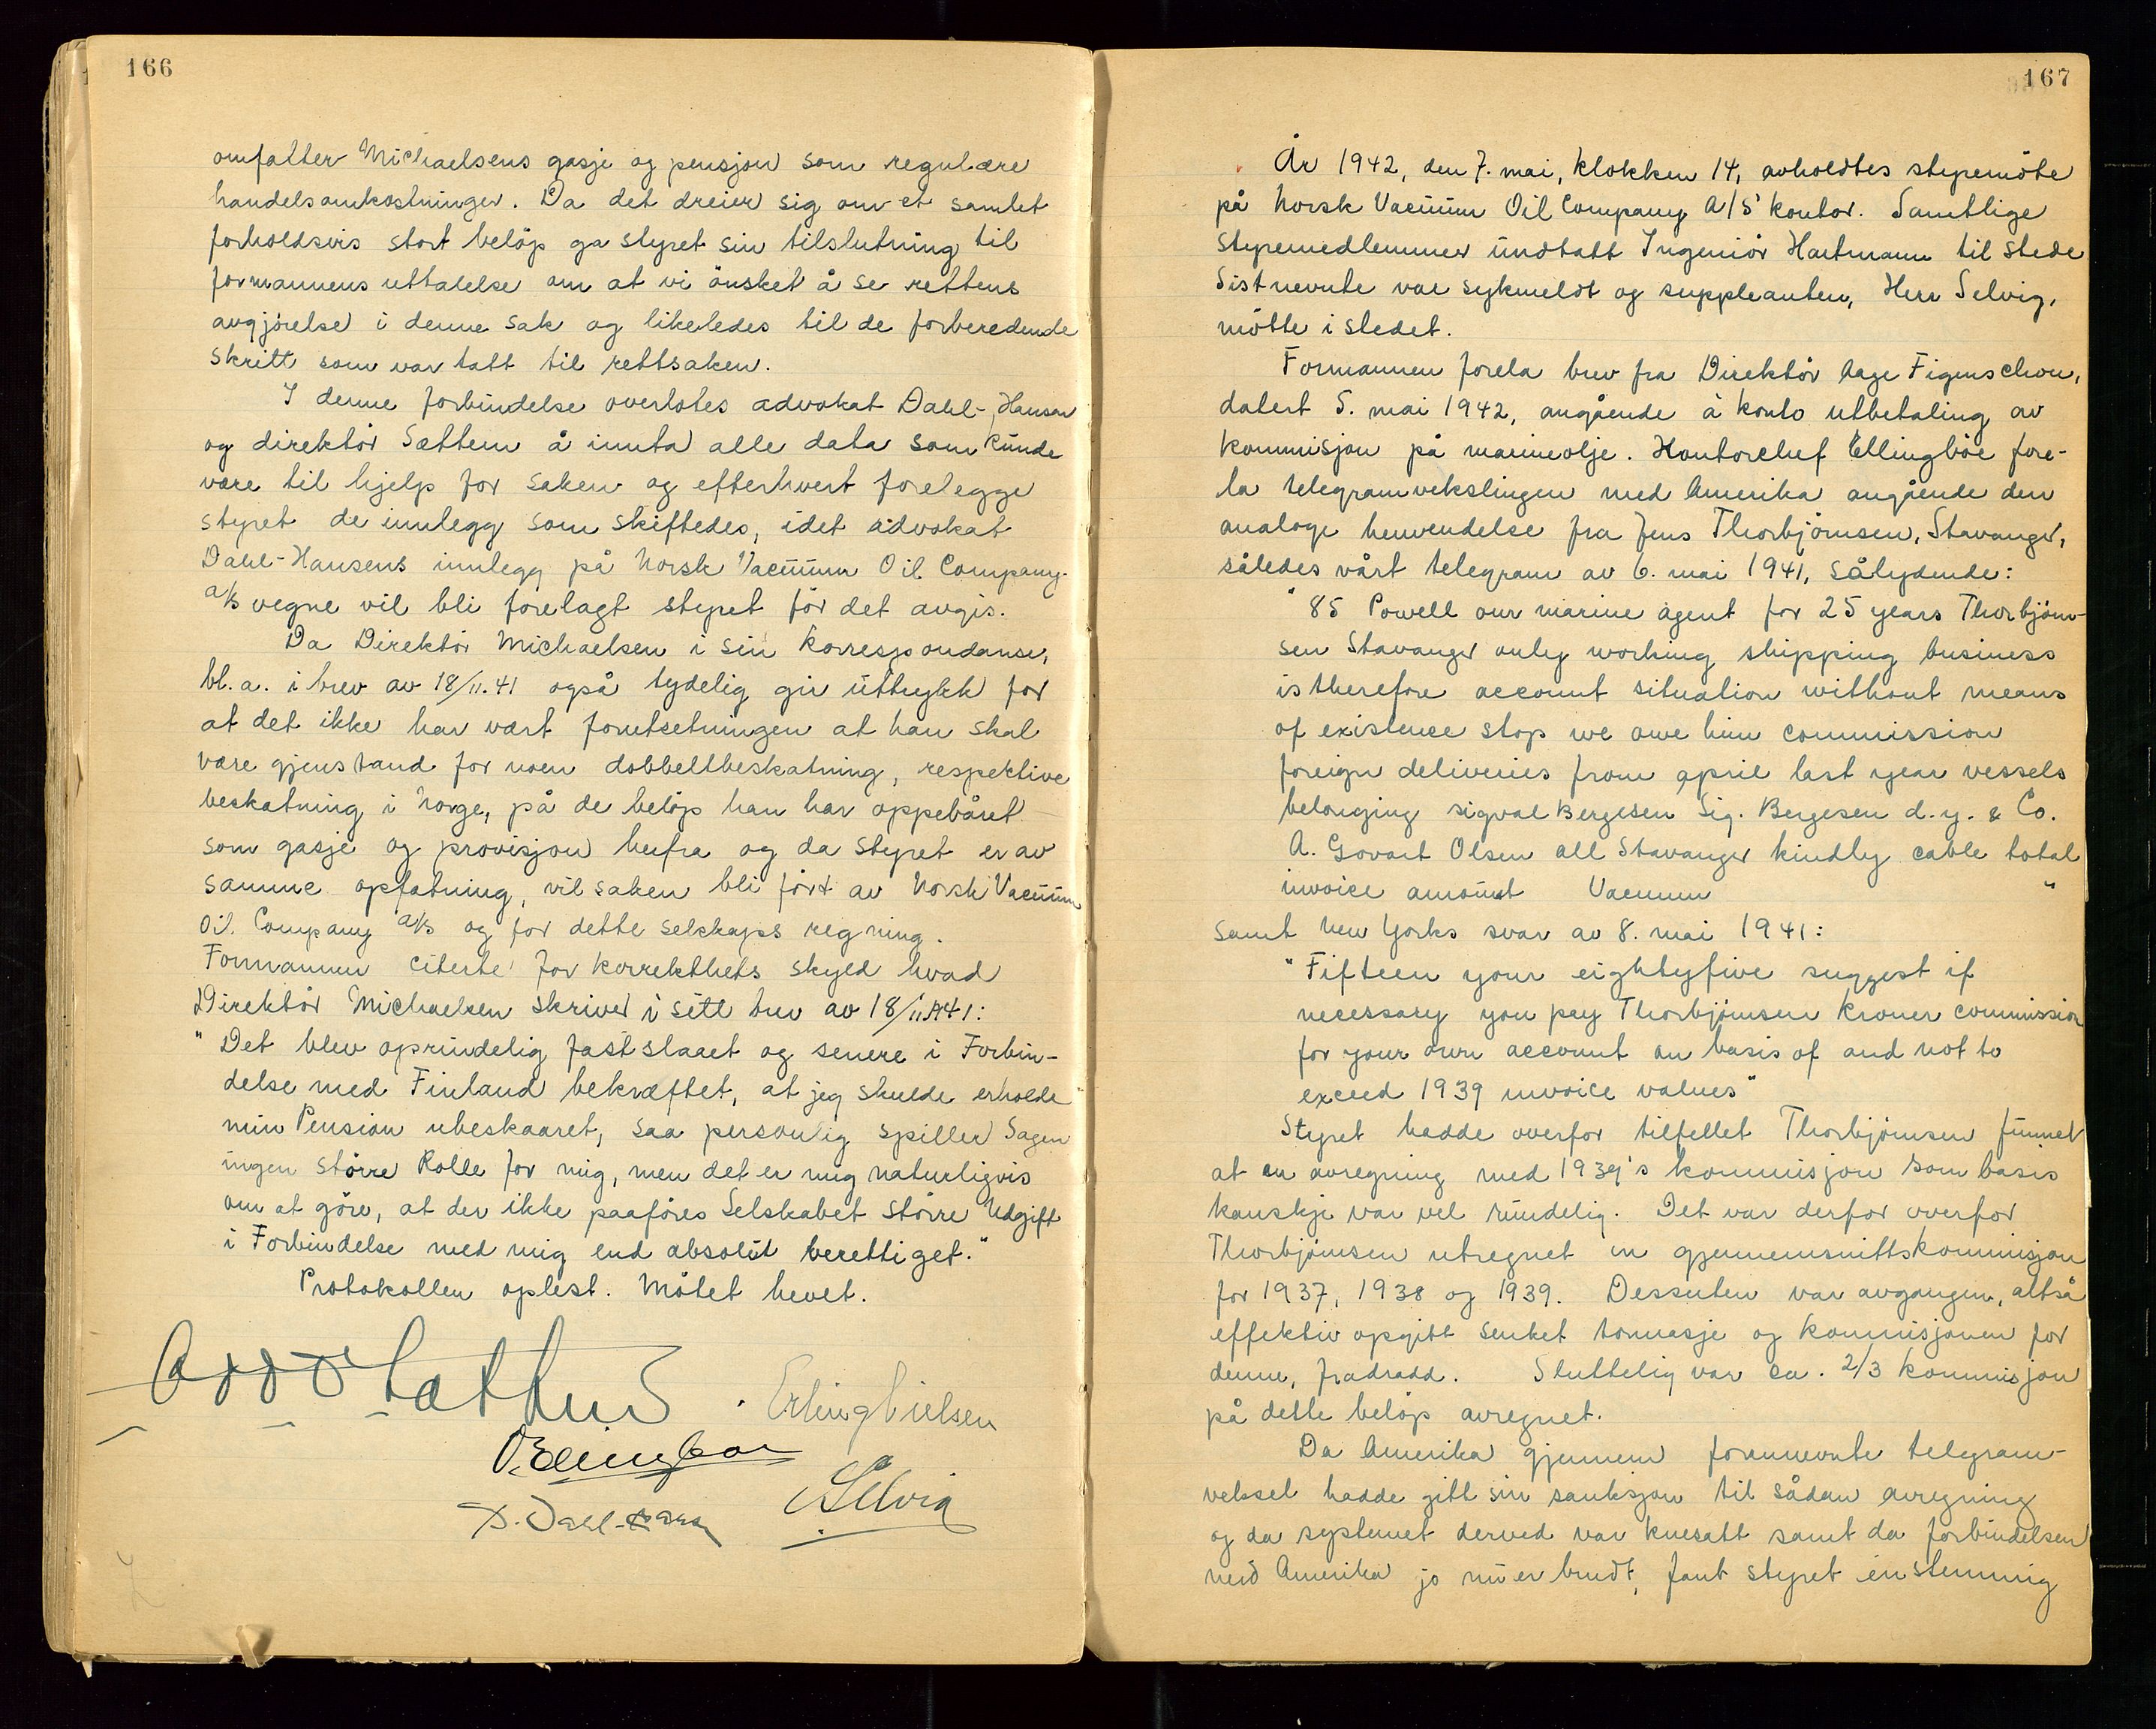 166
omfatter Michaelsens gasje og pensjon som regulære
handelsomkostninger. Da det dreier sig om et samlet
forholdsvis stort beløp ga styret sin tilslutning til
formannens uttalelse om at vi ønsket å se rettens
avgjørelse i denne sak og likeledes til de forberedende
skritt som var tatt til rettsaken.
I denne forbindelse overlotes advokat Dahl-Hansen
og direktör Sættem å innta alle data som kunde
være til hjelp for saken og efterhvert forelegge
styret de innlegg som skiftedes, idet advokat
Dahl-Hansens innlegg på Norsk Vacuum Oil Company
a/s vegne vil bli forelagt styret för det avgis.
Da Direktör Michaelsen i sin korrespondanse,
bl.a. i brev av 18/11.41 også tydelig gir uttrykk for
at det ikke har vært forutsetningen at han skal
være gjenstand for noen dobbeltbeskatning, respektive
beskatning i Norge, på de beløp han har oppebåret
som gasje og provisjon herfra og da styret er av
samme opfatning, vil saken bli fört av Norsk Vacuum
Oil Company a/s og for dette selskaps regning.
Formannen citerte for korrekthets skyld hvad
Direktör Michaelsen skriver i sitt brev av 18/11.1941:
"Det blev oprindelig fastslaaet og senere i Forbin-
delse med Finland bekræftet, at jeg skulde erholde
min Pension ubeskaaret, saa personlig spiller Sagen
ingen större Rolle for mig, men det er mig naturligvis
om at göre, at der ikke paaföres Selskabet större Udgift
i Forbindelse med mig end absolut berettiget."
Protokollen oplest. Mötet hevet.
Erling Nielsen
O. Ellingböe
Selvig
167
År 1942, den 7. mai, klokken 14, avholdtes styremöte
på Norsk Vacuum Oil Company A/S' kontor. Samtlige
styremedlemmer undtatt Ingeniör Hartmann til stede
Sistnevnte var sykmeldt og suppleanten, Herr Selvig,
mötte i stedet.
Formannen forela brev fra Direktör Aage Figenschou,
datert 5. mai 1942, angående à konto utbetaling av
kommisjon på marineolje. Kontorchef Ellingböe fore-
la telegramvekslingen med Amerika angående den
analoge henvendelse fra Jens Thorbjörnsen, Stavanger,
således vårt telegram av 6. mai 1941, sålydende:
"85 Powell our marine agent for 25 years Thorbjörn-
sen Stavanger only working shipping business
is therefore account situation without means
of existence stop we owe him commission
foreign deliveries from april last year vessels
belonging sigval Bergesen Sig. Bergesen d.y. & Co.
A. Govart Olsen all Stavanger kindly cable total
invoice amount Vacuum "
samt New Yorks svar av 8. mai 1941:
"Fifteen your eightyfive suggest if
necessary you pay Thorbjörnsen kroner commission
for your own account on basis of and not to
exceed 1939 invoice values"
Styret hadde overfor tilfellet Thorbjörnsen funnet
at en avregning med 1939's kommisjon som basis
kanskje var vel rundelig. Det var derfor overfor
Thorbjörnsen utregnet en gjennemsnittskommisjon
for 1937, 1938 og 1939. Dessuten var avgangen, altså
effektiv opgitt senket tonnasje og kommisjonen for
denne, fradradd. Sluttelig var ca. 2/3 kommisjon
på dette beløp avregnet.
Da Amerika gjennem forannevnte telegram-
veksel hadde gitt sin sanksjon til sådan avregning
og da systemet derved var knesatt samt da forbindelsen
med Amerika jo nu er brudt, fant styret enstemmig